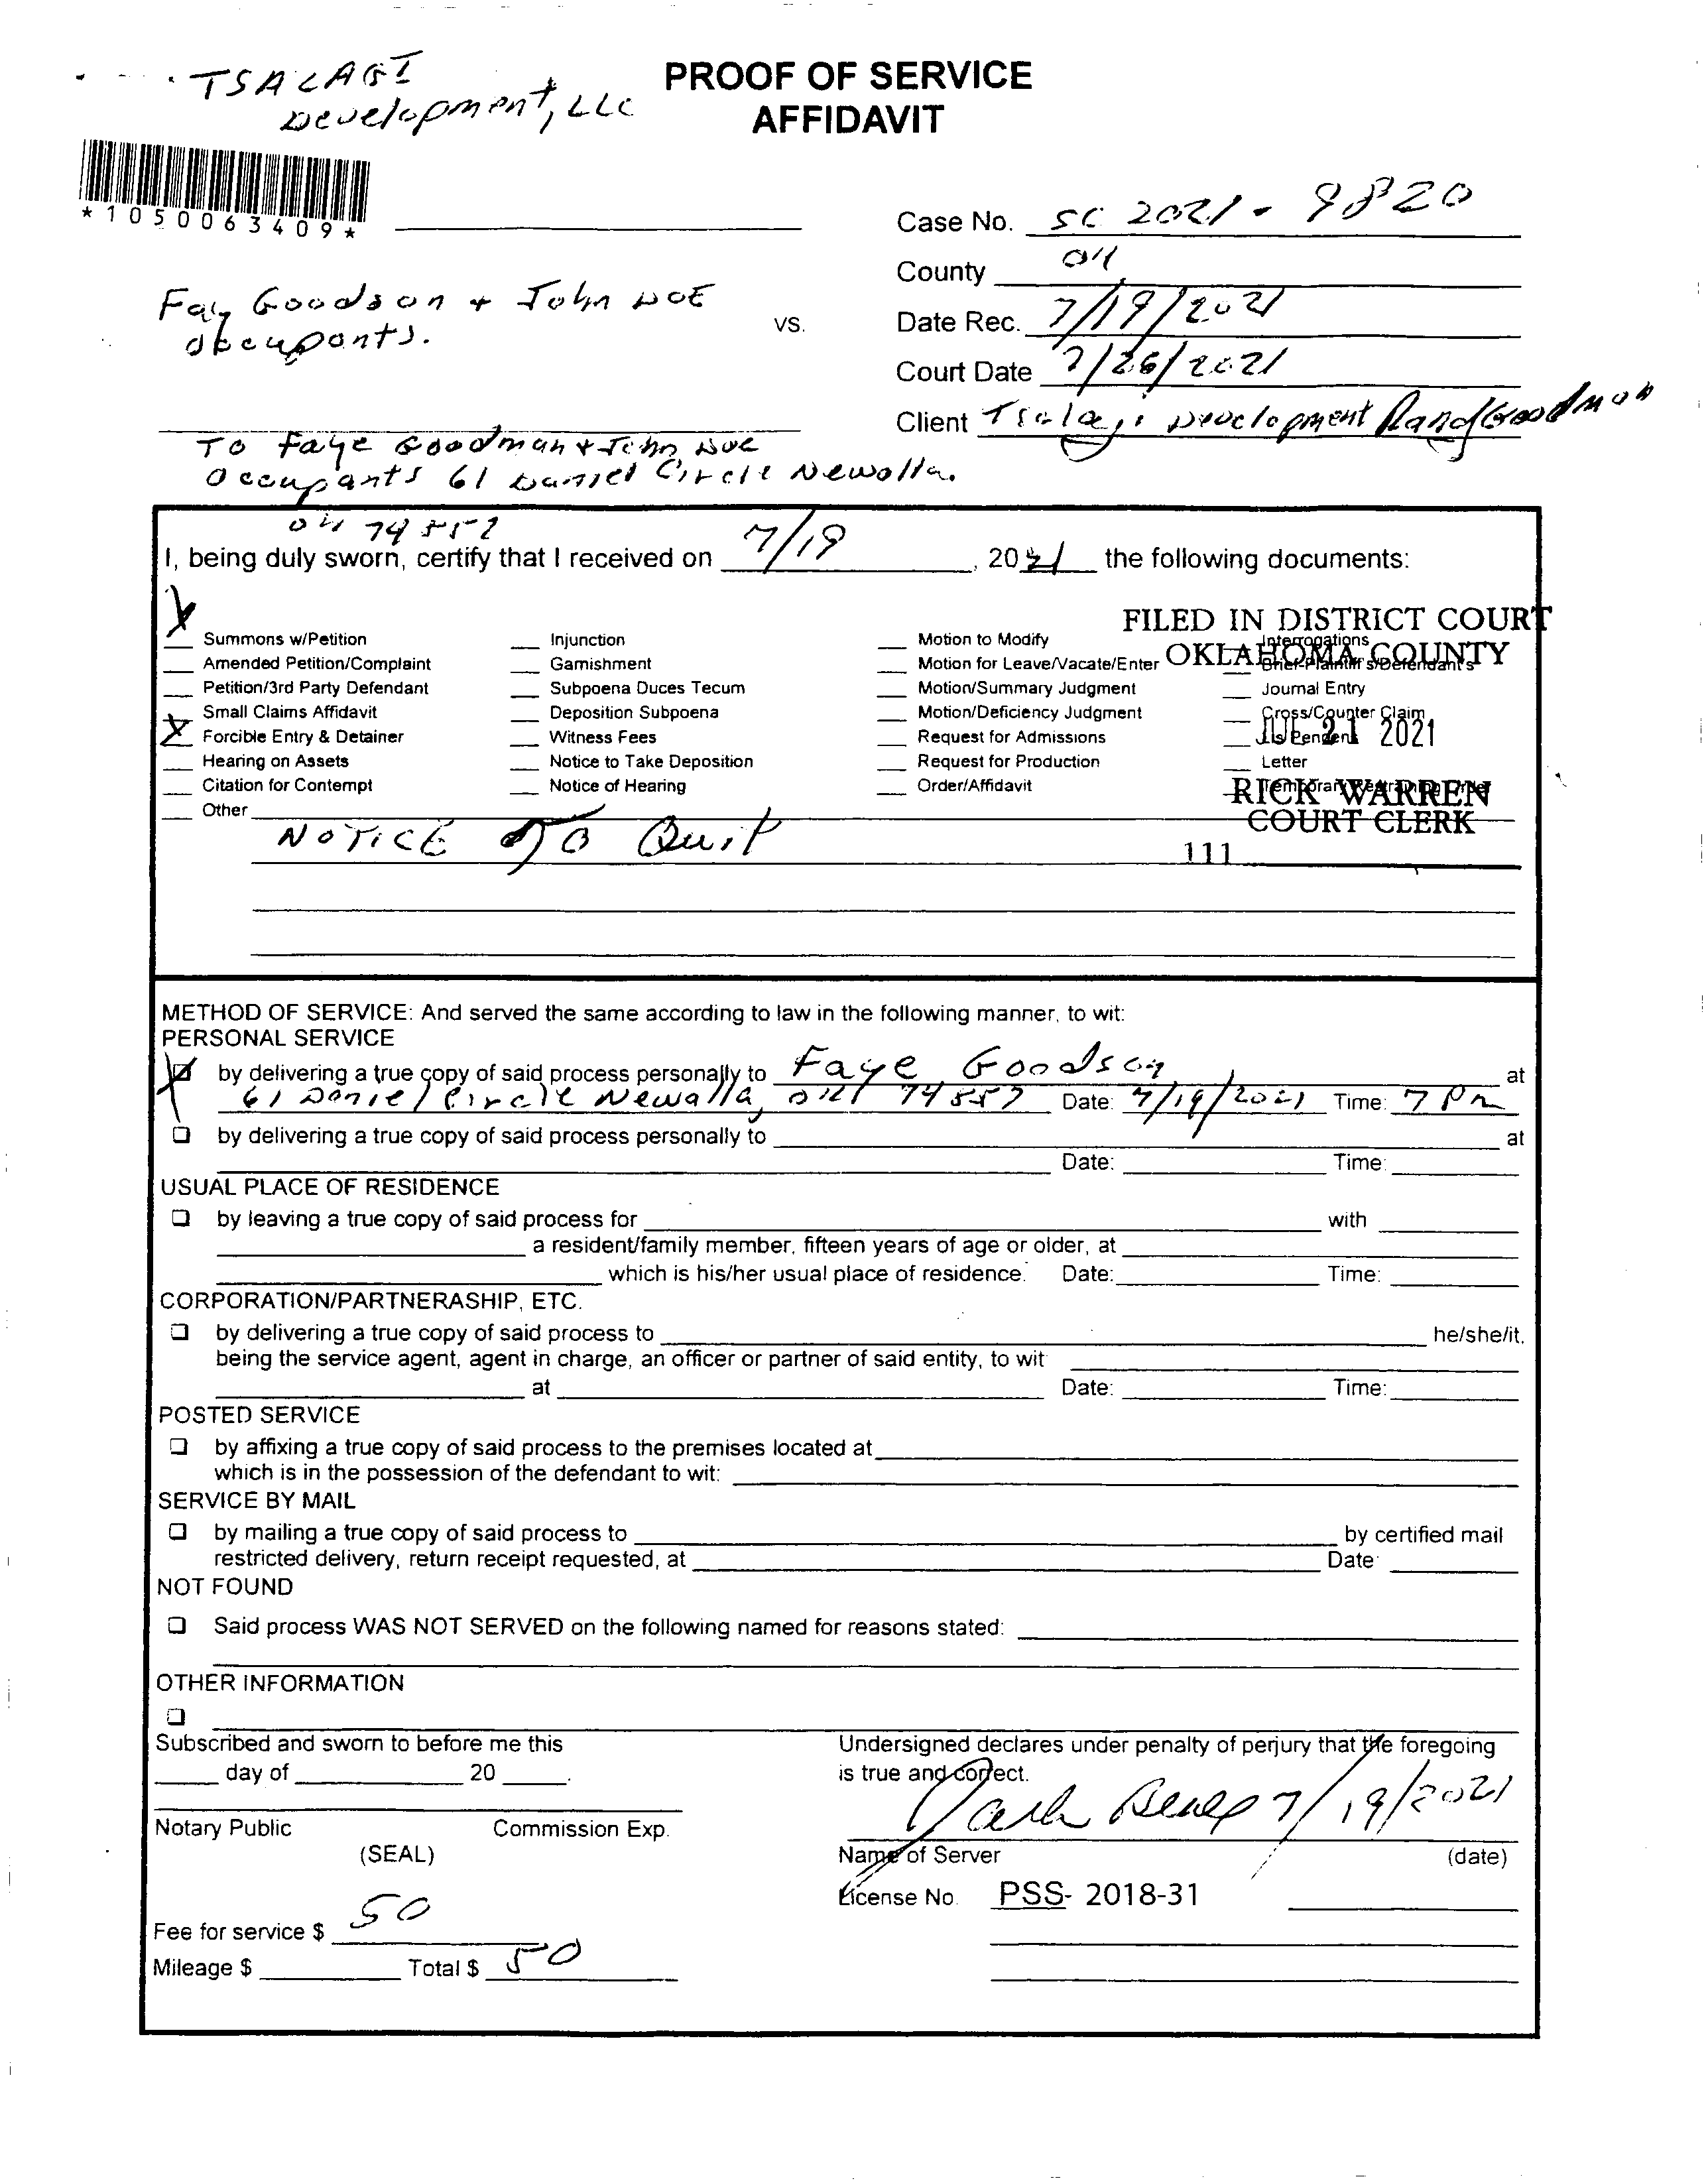 TSALAGI
Development, LLC
PROOF OF SERVICE
AFFIDAVIT
*1050063409*
Case No. SC 2021 - 9820
County OK
Fay Goodson + John DOE
occupants.
vs.
Date Rec. 7/19/2021
Court Date 7/26/2021
Client Tsalagi Development Goodman
To Faye Goodman + John Doe
Occupants 61 Daniel Circle Newalla.
OK 74857
I, being duly sworn, certify that I received on 7/19, 2021 the following documents:
FILED IN DISTRICT COURT
OKLAHOMA COUNTY
JUL 21 2021
RICK WARREN
COURT CLERK
111
X Summons w/Petition
Amended Petition/Complaint
Petition/3rd Party Defendant
Small Claims Affidavit
X Forcible Entry & Detainer
Hearing on Assets
Citation for Contempt
Other
Injunction
Garnishment
Subpoena Duces Tecum
Deposition Subpoena
Witness Fees
Notice to Take Deposition
Notice of Hearing
Motion to Modify
Motion for Leave/Vacate/Enter
Motion/Summary Judgment
Motion/Deficiency Judgment
Request for Admissions
Request for Production
Order/Affidavit
Interrogations
Brief-Plaintiff's/Defendant's
Journal Entry
Cross/Counter Claim
Lis Pendens
Letter
Temporary Restraining Order
NOTICE TO Quit
METHOD OF SERVICE: And served the same according to law in the following manner, to wit:
PERSONAL SERVICE
X by delivering a true copy of said process personally to Faye Goodson at
61 Daniel Circle Newalla, OK 74857 Date: 7/19/2021 Time: 7 Pm
by delivering a true copy of said process personally to at
Date: Time:
USUAL PLACE OF RESIDENCE
by leaving a true copy of said process for with
a resident/family member, fifteen years of age or older, at
which is his/her usual place of residence. Date: Time:
CORPORATION/PARTNERASHIP, ETC.
by delivering a true copy of said process to he/she/it,
being the service agent, agent in charge, an officer or partner of said entity, to wit
at Date: Time:
POSTED SERVICE
by affixing a true copy of said process to the premises located at
which is in the possession of the defendant to wit:
SERVICE BY MAIL
by mailing a true copy of said process to by certified mail
restricted delivery, return receipt requested, at Date
NOT FOUND
Said process WAS NOT SERVED on the following named for reasons stated:
OTHER INFORMATION
Subscribed and sworn to before me this
day of 20 .
Notary Public Commission Exp.
(SEAL)
Fee for service $ 50
Mileage $ Total $ 50
Undersigned declares under penalty of perjury that the foregoing
is true and correct.
7/19/2021
Name of Server (date)
License No. PSS- 2018-31